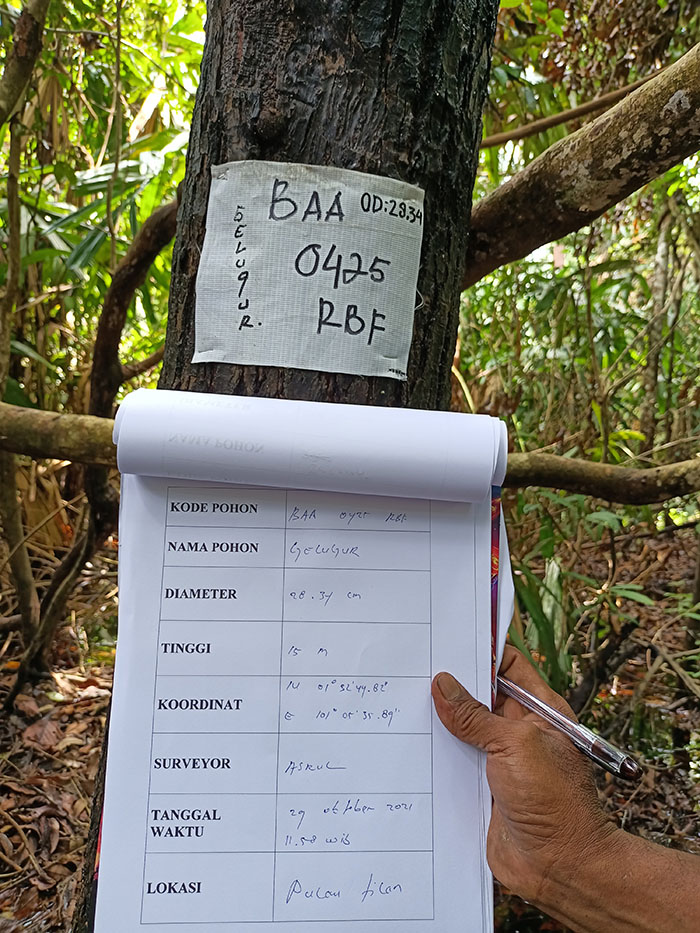 BAA OD:28.34
GELUGUR.
0425
RBF
NAMA POHON
KODE POHON BAA 0425 RBF
NAMA POHON GELUGUR
DIAMETER 28.34 cm
TINGGI 15 M
KOORDINAT N 01° 32' 44.82"
E 101° 05' 35.89"
SURVEYOR ASRUL
TANGGAL WAKTU 29 oktober 2021
11.58 wib
LOKASI Pulau